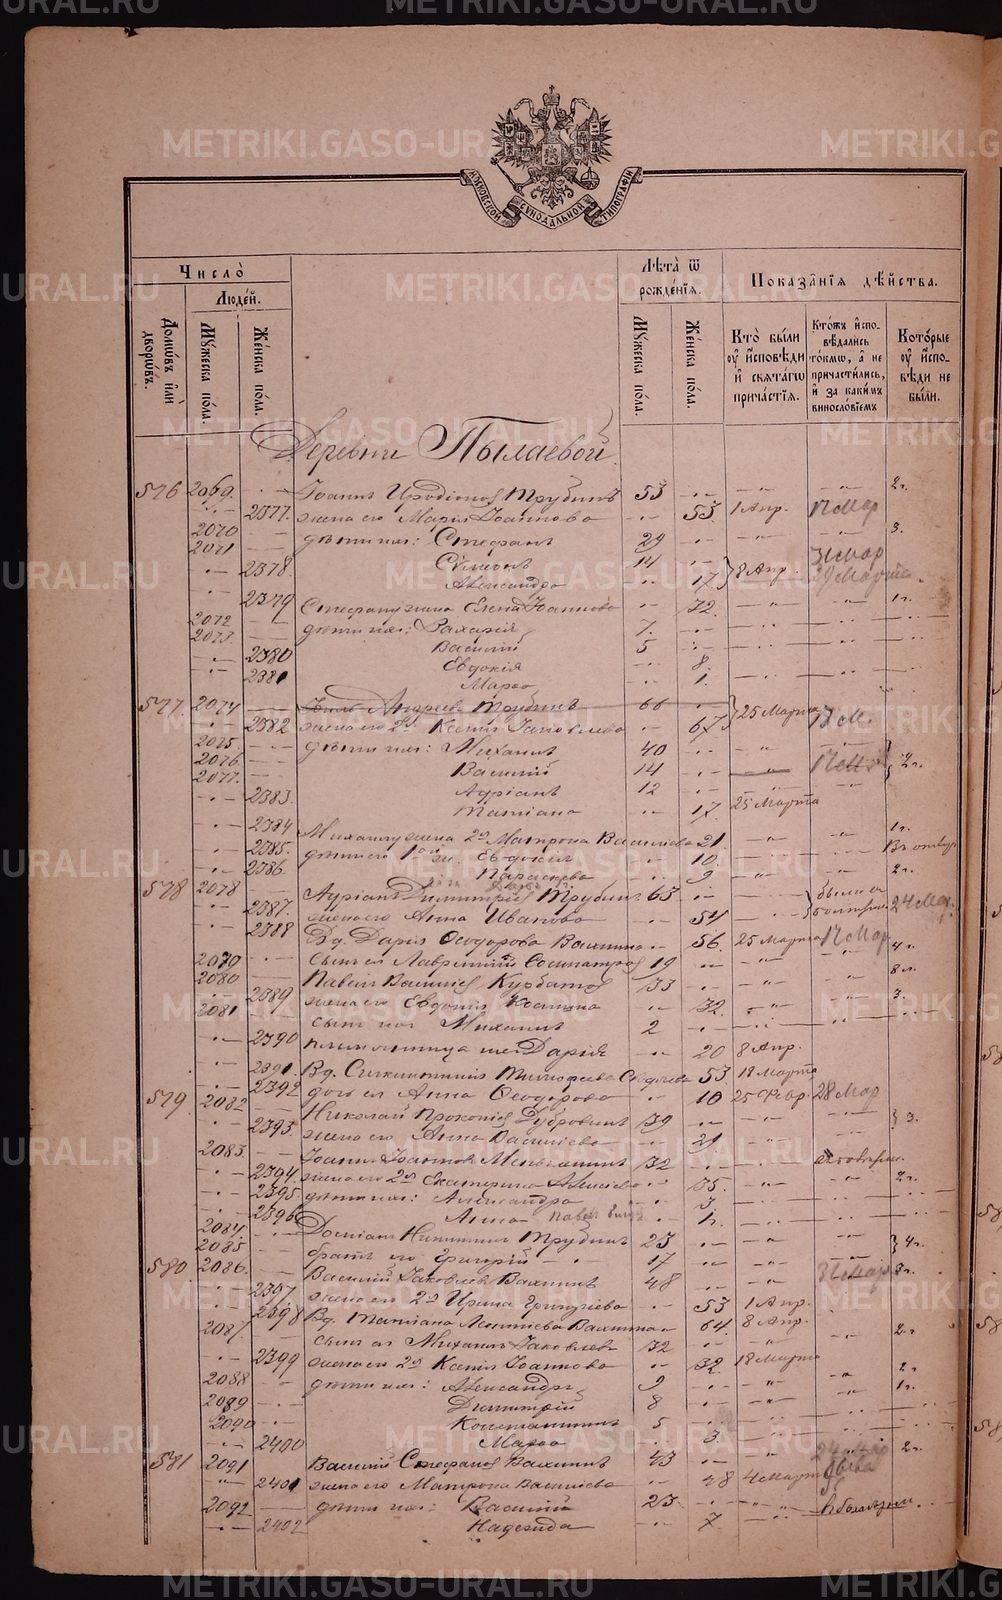 ХАРКОВСКОЙ СѴНОДАЛЬНОЙ ТИПОГРАФІИ
Число̀
Людей.
Домѡвъ или дворѡвъ.
Мꙋжеска пола.
Женска пола.
Лѣта̀ ѿ рожде́нїѧ.
Мꙋжеска пола.
Женска пола.
Показа̑нїѧ дѣйства.
Кто̀ бы́ли ᲂу҆ и҆сповѣди и҆ свѧта́гѡ прича́стїѧ.
Кто́жъ и҆спо- вѣдались то́кмѡ, а҆ не причасти́лись, и҆ за каки́мъ виносло́вїемъ
Кото́рые ᲂу҆ и҆спо- вѣди не бы́ли.
Деревни Пылаевой
576 2069 Іоаннъ Иродіоновъ Трубинъ 53 2 г.
2377. жена его Марія Іоаннова 53 1 Апр. 17 Мар
2070 дѣти ихъ: Стефанъ 29 3.
2071 Сѵмеонъ 14 31 Мар
2378. Александра 17 8 Апр. 29 Марта
2379 Стефану жена Елена Іоаннова 32. 1 г.
2072 дѣти ихъ: Захарій 7.
2073. Василій 5
2380 Евдокія 8.
2381 Марѳа 1.
577 2074 Андреевъ Трубинъ 66 25 Марта
2382 жена его 2я Ксенія Іаковлева 67 17 М.
2075. дѣти ихъ: Михаилъ 40
2076 Василій 14 2 г.
2077. Адріанъ 12
2383. Татіана 17 25 Марта
2384 Михаилу жена 2я Матрона Василіева 21. 1 г.
2385. Евдокія 10.
2386. Параскева 9 2 г.
578 2078 Адріанъ Димитріевъ Трубинъ 63
2387. жена его Анна Иванова 54 24 Мар.
2388 Вд. Дарія Ѳеодорова Вахнина 56. 25 Марта 17 Мар
2079 сынъ ея Лаврентій Сосипатровъ 19 4 г.
2080 Павелъ Василіевъ Курбатовъ 33 8 г.
2389 жена его Евдокія 32. 3.
2081 сынъ ихъ Михаилъ 2
2390 племянница ихъ Дарія 20 8 Апр.
2391. Вд. Синклитикія Тимофеева 53 18 Марта
2392 дочь ея Анна Ѳеодорова 10 25 Февр. 28 Мар
579 2082 Николай Прокопіевъ Дубровинъ 39 3.
2393. жена его Анна Василіева 29
2083. Іоаннъ Іоанновъ 32
2394. жена его 2я Екатерина Алексіева 35. 2 г.
2395 дѣти ихъ: Александра 3.
2396 Анна 1 г.
2084. Никитинъ Трубинъ 23 4 г.
2085. братъ его Григорій 17
580 2086. Василій Іаковлевъ Вахнинъ 48 31 Мар 3 г.
2397. жена его 2я Ирина Григоріева 53 1 Апр.
2398 Вд. Татіана Леонтіева Вахнина 64. 8 Апр.
2087. сынъ ея Михаилъ Іаковлевъ 32 2 г.
2399 жена его 2я Ксенія Іоаннова 32. 18 Марта
2088 дѣти ихъ: Александръ 9 2 г.
2089 Димитрій 8 1 г.
2090 Константинъ 5
2400 Марѳа 3
581 2091 Василій Стефановъ Вахнинъ 43 2 г.
2401 жена его Матрона Василіева 48 4 Марта
2092 дѣти ихъ: Василій 23.
2402 Надежда 7
METRIKI.GASO-URAL.RU